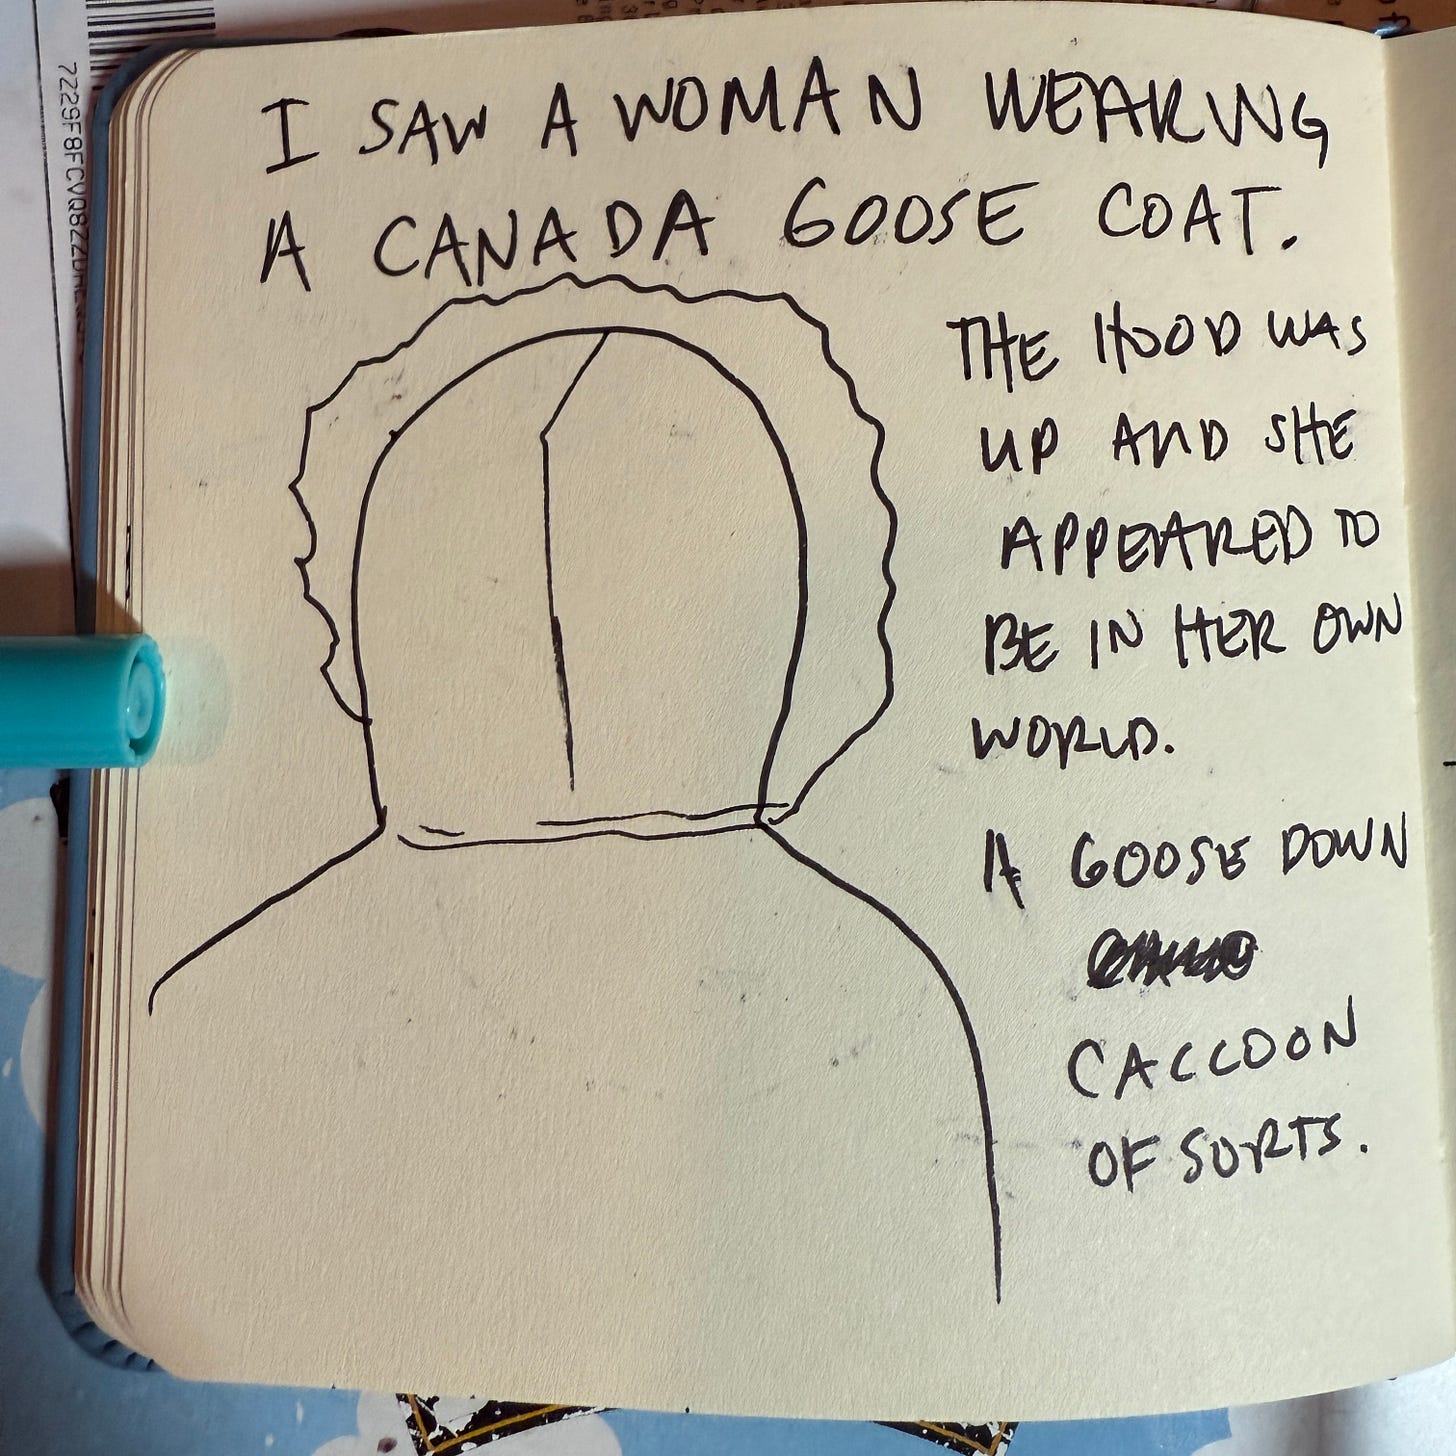 I SAW A WOMAN WEARING
A CANADA GOOSE COAT.
THE HOOD WAS
UP AND SHE
APPEARED TO
BE IN HER OWN
WORLD.
A GOOSE DOWN
CACCOON
OF SORTS.